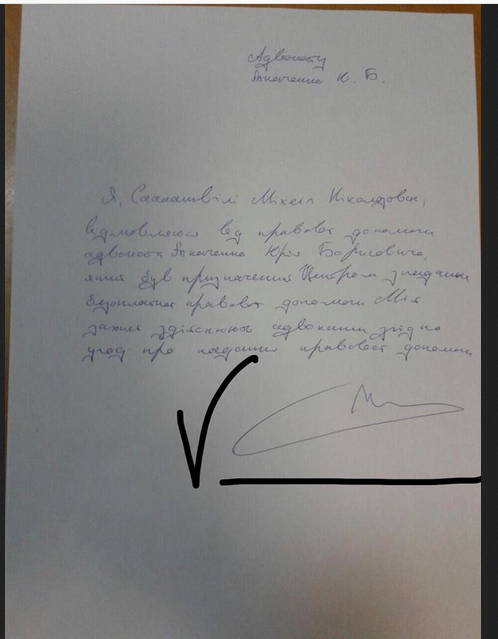 Адвокату
Ю. Б.
Я, Саакашвілі Міхеіл Ніколозович,
відмовляюся від правової допомоги
адвоката Юрія Борисовича,
який був призначений Центром з надання
безоплатної правової допомоги Мій
захист здійснюють адвокати згідно
угод про надання правової допомоги